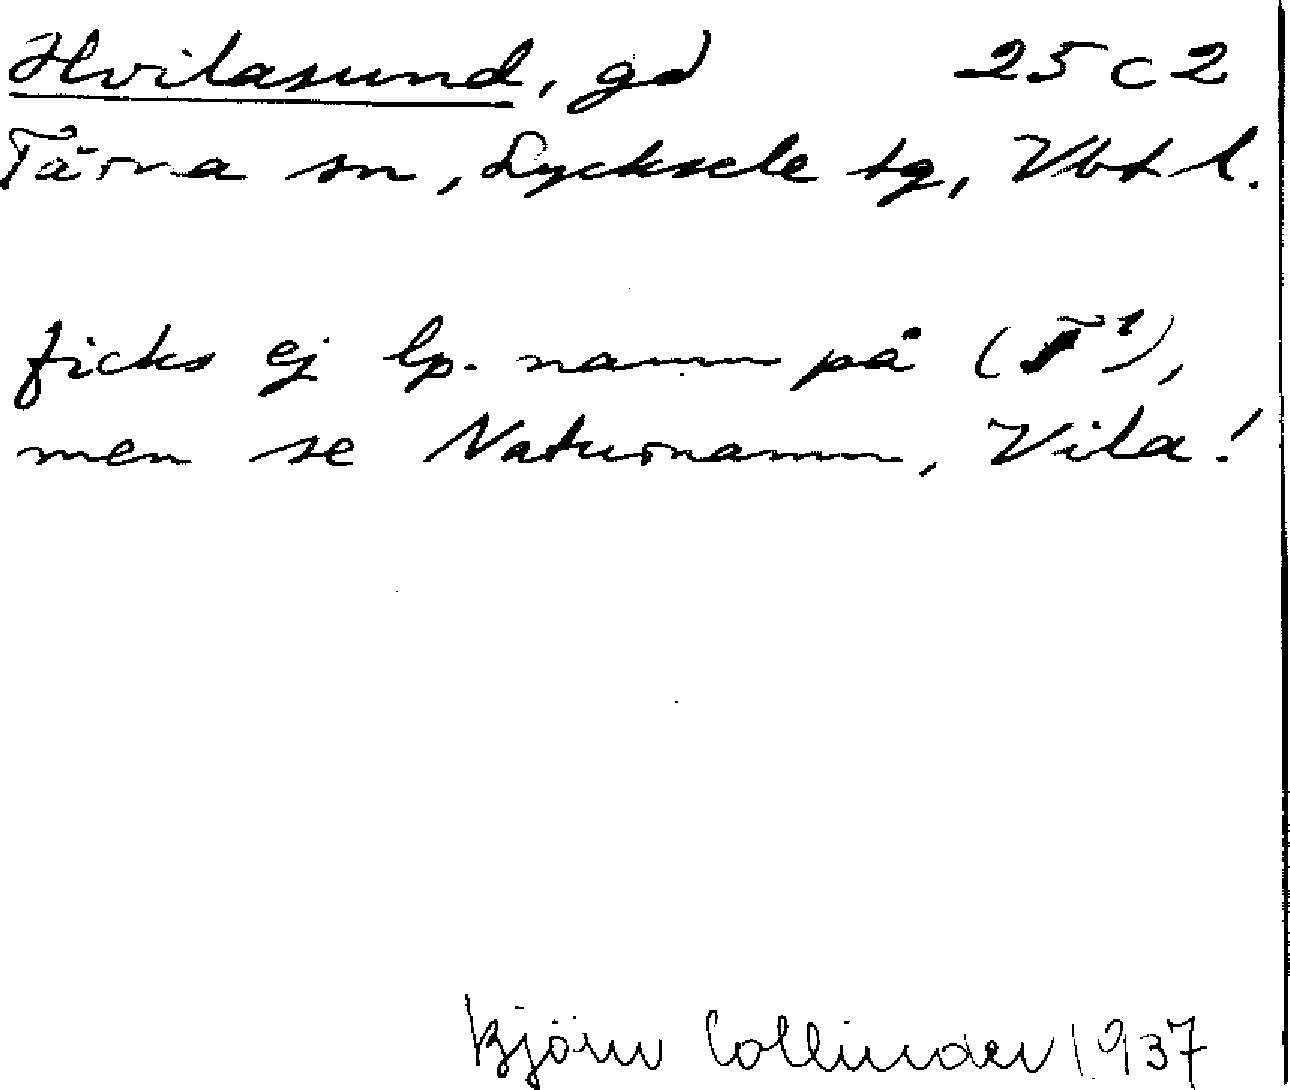 Hvilasund, gd 25 c 2
Tärna sn, Lycksele tg, Vbt l.
ficks ej lp. namn på (T¹),
men se Naturnamn, Vila!
Björn Collinder 1937